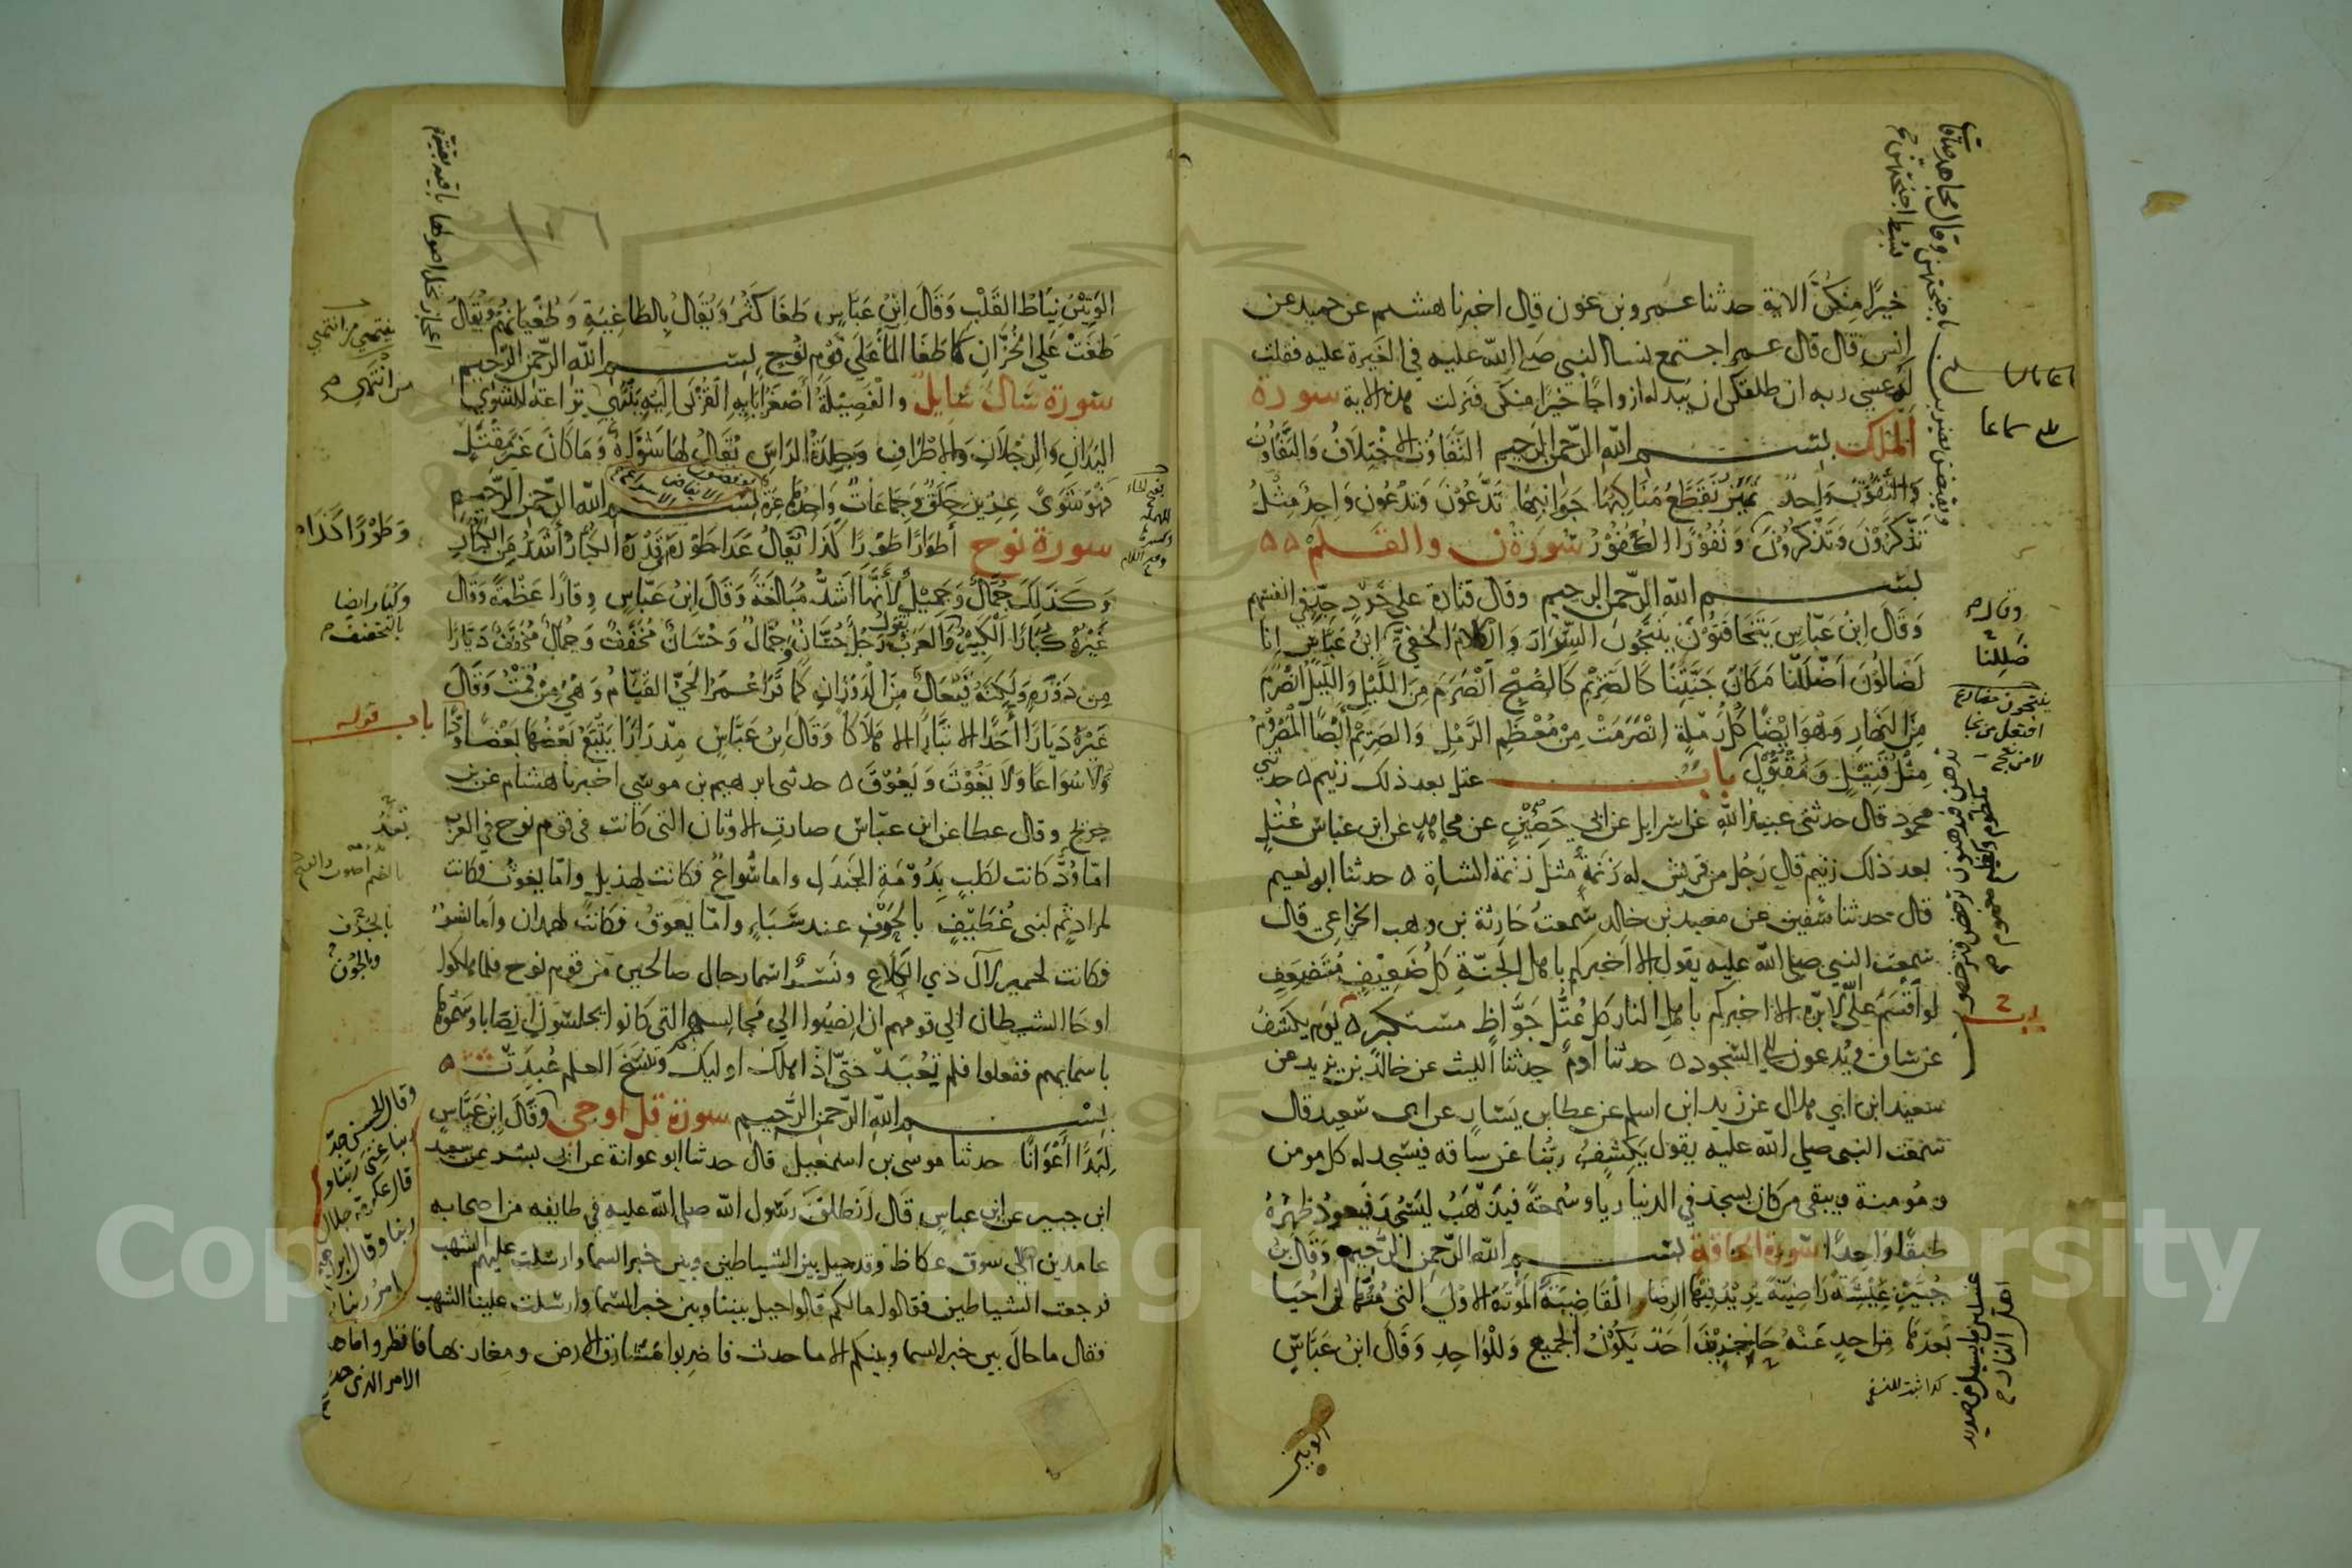 خيرا منكن الاية حدثنا عمرو بن عون قال اخبرنا هشيم عن حميد عن
انس قال قال عمر اجتمع نسا النبي صلى الله عليه في الغيرة عليه فقلت
لهن عسى ربه ان طلقكن ان يبدله ازواجا خيرا منكن فنزلت هذه الاية سورة
الملك بسم الله الرحمن الرحيم التَّفَاوُت الاخْتِلَافُ وَالتَّفَاوُتُ
وَالتَّفَوُّتُ وَاحِدٌ تَمَيَّزُ تَقَطَّعُ مَنَاكِبِهَا جَوَانِبِهَا تَدَّعُوْنَ وَتَدْعُوْنَ وَاحِدٌ مِثْلُ
تَذَّكَّرُوْنَ وَتَذْكُرُوْنَ وَنُفُوْرٌ الكُفُوْرُ سورة ن والقلم
بسم الله الرحمن الرحيم وقال قتادة على حَرْدٍ جِدٍّ في انفسهم
وَقَالَ ابْنُ عَبّاسٍ يَتَخَافَتُوْنَ يَنْتَجُونَ السِّرَارَ وَالكَلامَ الخَفِيَّ ابنُ عَبَّاسٍ اِنا
لَضَالوُّنَ اَضْلَلْنَا مَكَانَ جَنَّتِنَا كَالصَّرِيْمِ كَالصُّبْحِ اَنْصَرَمَ مِنَ اللَّيْلِ وَاللَّيْلُ انْصَرَمَ
مِنَ النَّهَارِ وَهُوَ ايْضًا كُلُّ رَمْلَةٍ انْصَرَمَتْ مِنْ مُعْظَمِ الرَّمْلِ وَالصَّرِيْمُ ايْضًا الْمَصْرُوْمُ
مِثْلُ قَتِيْلٍ وَمَقْتُوْلٍ باب عتل بعد ذلك زنيم حدثني
محمود قال حدثني عبيدُ اللهِ عن اسرايل عن ابي حَصِيْنٍ عن مجاهدٍ عن ابن عباس عُتُلٍّ
بعد ذلك زنيم قال رَجُل من قريش له زَنَمَةٌ مثل زنمة الشاةِ حدثنا ابو نعيم
قال حدثنا سُفين عن معبد بن خالد سمعتُ حَارِثة بن وهب الخزاعي قال
سمعت النبي صلى الله عليه يقول الا اخبركم باهل الجنّةِ كل ضَعِيْفٍ مُتَضَعِفٍ
لو اَقْسَمَ على اللهِ لابرّه الا اخبركم باهل النار كل عُتُلٍّ جَوَّاظٍ مستكبر يوم يكشف
عن ساق ويُدعون الى السّجود حدثنا ادم حدثنا الليث عن خالد بن يزيد عن
سعيد ابن ابي هلال عن زيد ابن اسلم عن عطا بن يَسَارٍ عن ابي سعيد قال
سمعت النبي صلى الله عليه يقول يَكْشِفُ رَبُّنا عن سَاقه فيسجد له كل مومن
ومُومنة ويبقى من كان يسجد في الدنيا رياء وسُمعةً فيَذْهَبُ ليَسْجُدَ فيعودُ ظهرُهُ
طبقًا وَاحِدًا سورة الحاقة بسم الله الرحمن الرحيم وَقَال بن
جُبَيْرٍ عِيْشَةٍ رَاضِيَةٍ يُرِيْدُ فِيْهَا الرِّضَا الْقَاضِيَةَ المَوْتَةَ الاوْلَى التي مُتُّهَا لم احْيَا
بَعْدَهَا مِن احدٍ عَنْهُ حَاجِزِيْنَ اَحَدٌ يَكُوْنُ للْجَميع وَللْوَاحِدِ وَقَالَ ابْنُ عَبَّاسٍ
الوتين
الوَتِيْنَ نِيَاطُ القَلْبِ وَقَالَ ابْنُ عَبَّاسٍ طَغَا كَثُرَ وَيُقَالُ بِالطَاغِيَةِ وَطُغْيَانِهِمْ وَيُقَالُ
طَغَتْ عَلَى الخُزَّانِ كَمَا طَغَا المَآ عَلى قَوْمِ نُوْحٍ بسم الله الرحمن الرحيم
سورة سال سايل والْفَصِيْلَةُ أَصْغَرُ ابَايِهِ الْقُرْبَى اليْهِ يَنْتَهِي نزاعة للشوى
اليَدَانِ وَالرِّجْلَانِ وَالاطْرَافِ وَجِلْدَةُ الرَاسِ يُقَالُ لهَا شَوَاةٌ وَمَا كَانَ غَيْرَ مَقْتَلٍ
فَهُوَ شَوًى عِزِيْنَ حِلَقٌ وَجَمَاعَاتٌ وَاحِدُهَا عِزَةٌ بسم الله الرحمن الرحيم
سورة نوح أطوَارًا طَوْرًا كَذَا يُقَالُ عَدَا طَوْرَهُ قَدْرَهُ الكُبَّارُ أَشَدُّ مِنَ الكُبَارِ
وَكَذلكَ جُمَّالٌ وَجَمِيْلٌ لأَنَّهَا اَشَدُّ مُبَالغَةً وَقَالَ ابنُ عَبّاسٍ وِقارًا عَظَمَةً وَقَال
غَيْرُهُ كُبَّارًا الْكَبِيْرُ وَالعَرَبُ تَقُولُ رَجُلٌ حُسَّانٌ وَجُمَّالٌ وَحُسَانٌ مُخَفَّفٌ وَجُمَالٌ مُخَفَّفٌ دَيَّارًا
مِن دَوْرٍ وَلَكِنَّهُ فَيْعَالٌ مِنَ الدَّوَرَانِ كَمَا قَرَا عُمَرُ الْحَيُّ القَيَّامُ وَهْيَ مِنْ قُمْتُ وَقَالَ
غَيْرُهُ دَيَارًا أَحَدًا الا تَبَارًا الا هَلاكًا وَقَالَ ابنُ عَبَّاسٍ مِدْرَارًا يَتْبَعُ بَعْضُهَا بَعْضًا وَدًّا
وَلا سُوَاعًا وَلَا يَغُوْثَ وَيَعُوْقَ حدثني ابرهيم بن موسى اخبرنا هشام عن بن
جريج وقال عطا عن ابن عبّاس صارت الاوثان التي كانت في قوم نوح في العرب
امّا وُدٌّ كَانت لكَلبٍ بِدُوْمَةِ الجندَلِ واما سُواعٌ فكانت لهذيل وامّا يغوث فكانت
لمرادٍ ثم لبني غُطَيْفٍ بالجَوْفِ عند سَبَاءٍ وامّا يَعُوقُ فكانت لهمدان وأما نسر
فكانت لحمير لآل ذي الكَلَاع ونَسْرًا اسما رجال صالحين من قوم نوح فلما هلكوا
اوحَا الشيطان الى قومهم ان انصِبُوا الى مَجَالِسهم التي كانوا يجلسون انصابا وسَمُّوهَا
باسمايهم ففعلوا فلم تُعْبَدْ حَتّى اذا هلك اوليك وَنُسِخَ العلم عُبِدَتْ
بسم الله الرحمن الرحيم سورة قل اوحى وقَالَ ابْن عَبَّاسٍ
لِبَدًا أَعْوَانًا حدثنا موسى بن اسمعيل قال حدثنا ابو عوانة عن ابي بشر عن سعيد
ابن جبير عن ابن عباسٍ قَال اَنطلقَ رَسُول الله صلى الله عليه في طايفه من اصحابه
عامدين الى سوق عكاظ وقد حيل بين الشياطين وبين خبر السما وارسلت عليهم الشهب
فرجعت الشياطين فقالوا مالكم قالوا حيل بيننا وبين خبر السّما وارسلت علينا الشهب
فقال ما حال بين خبر السما وبينكم الا ما حدث فاضربوا مَشارق الارض ومغاربها فانظروا ما هذا
الامر الذي حدث
وَطَوْرًا كَذَا
وكبارا ايضا
بالتخفيف
باب قوله
وقال الحسن جد
ربنا غنى ربنا و
قال عكرمة جلال
ربنا وقال ابرهيم
امرُ ربنا
Copyright © King Saud University